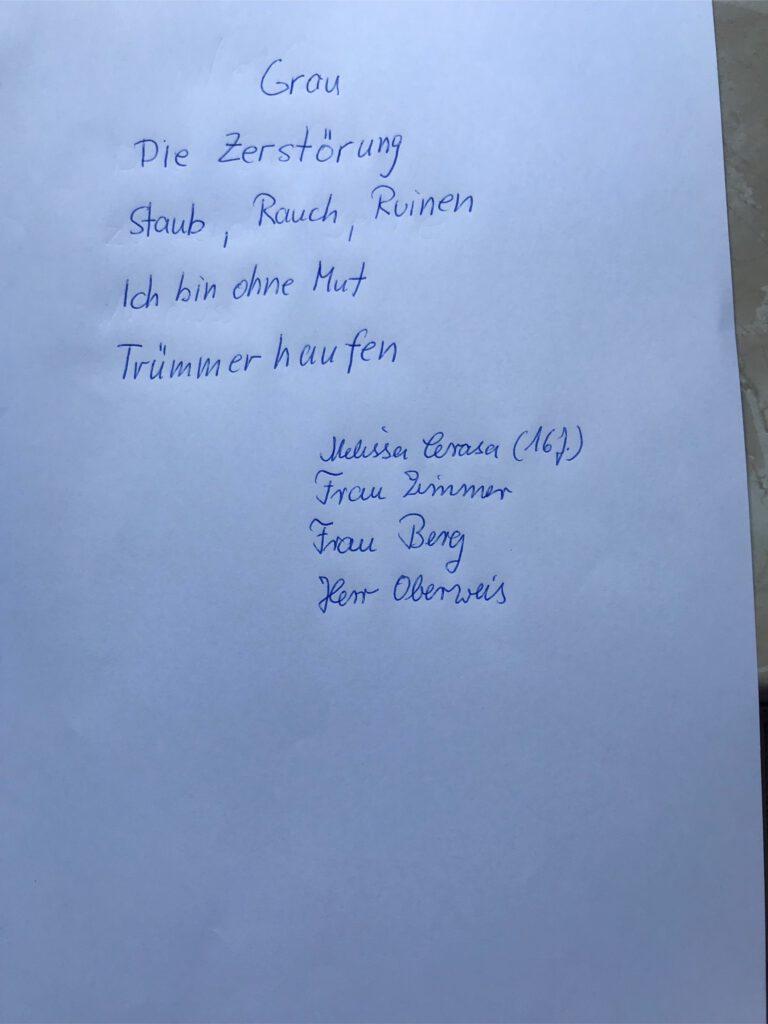 Grau
Die Zerstörung
Staub, Rauch, Ruinen
Ich bin ohne Mut
Trümmerhaufen
Melissa Cerasa (16J.)
Frau Zimmer
Frau Berg
Herr Oberweis